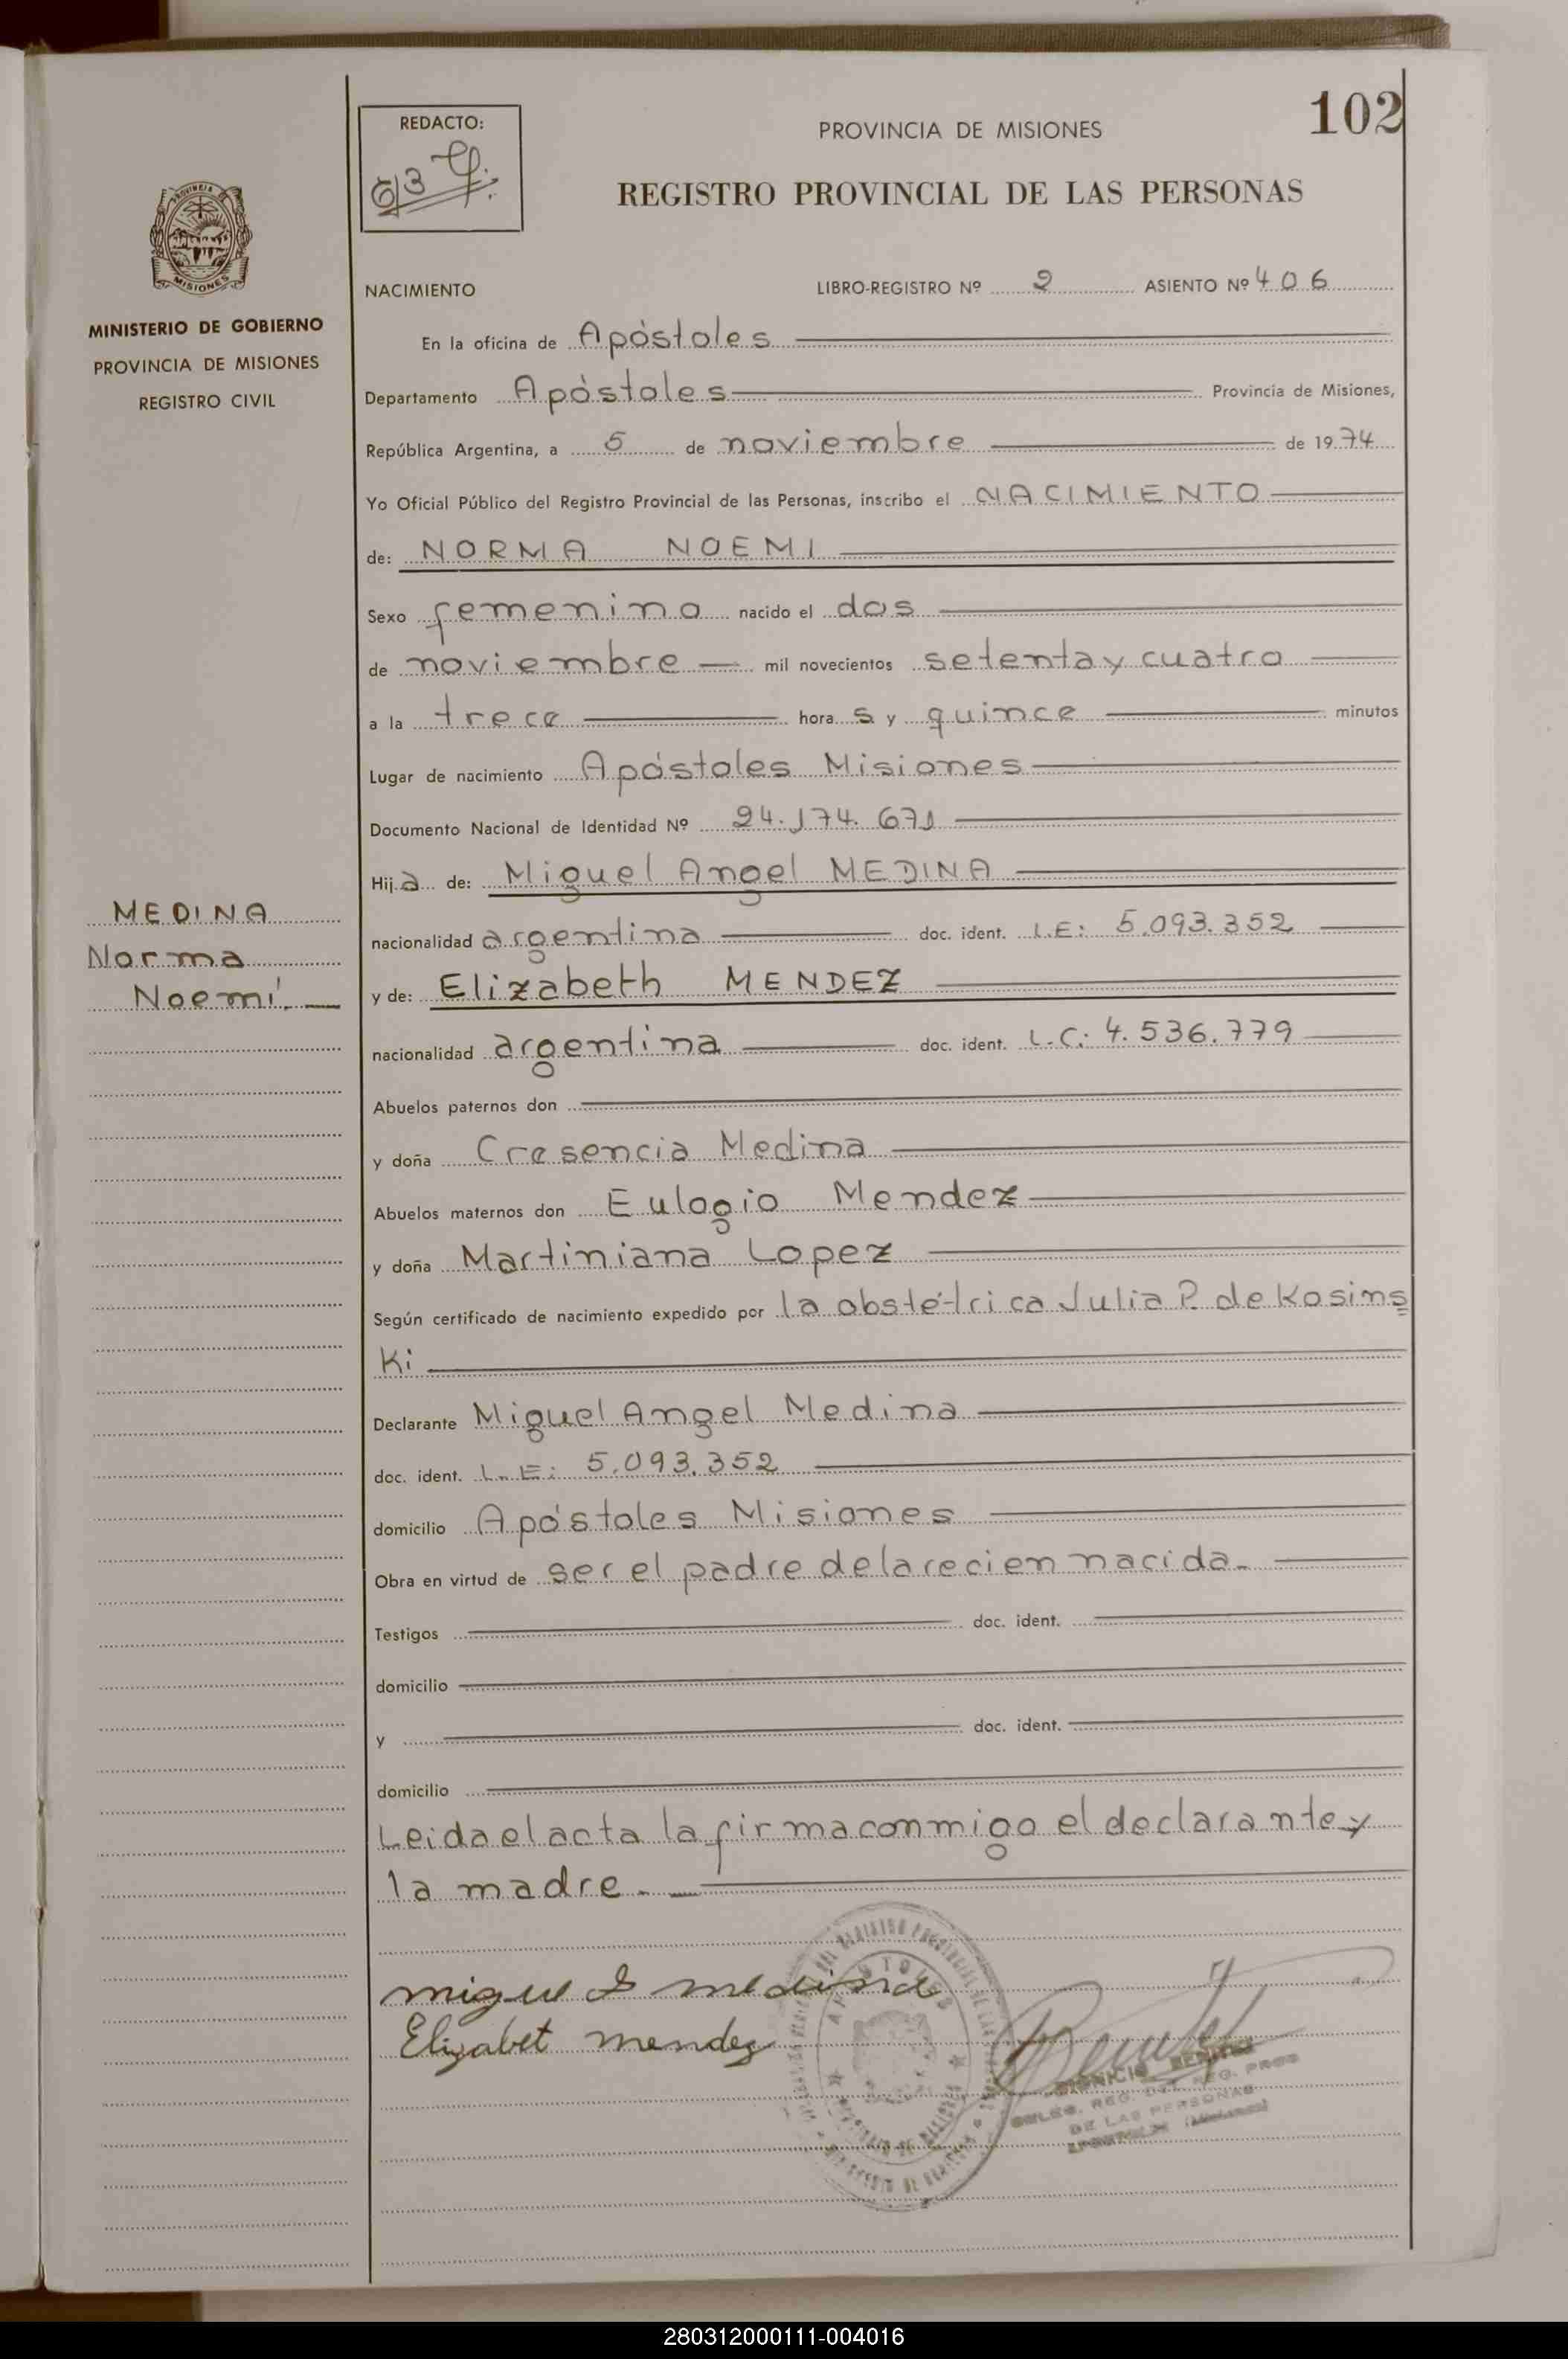 102
REDACTO:
PROVINCIA DE MISIONES
REGISTRO PROVINCIAL DE LAS PERSONAS
MISIONES
MINISTERIO DE GOBIERNO
PROVINCIA DE MISIONES
REGISTRO CIVIL
NACIMIENTO LIBRO-REGISTRO Nº 2 ASIENTO Nº 406
En la oficina de Apóstoles
Departamento Apóstoles Provincia de Misiones,
República Argentina, a 5 de noviembre de 1974
Yo Oficial Público del Registro Provincial de las Personas, inscribo el NACIMIENTO
de: NORMA NOEMI
Sexo femenino nacido el dos
de noviembre — mil novecientos setenta y cuatro
a la trece hora s y quince minutos
Lugar de nacimiento Apóstoles Misiones
Documento Nacional de Identidad Nº 24.174.671
Hija de: Miguel Angel MEDINA
MEDINA
Norma
Noemí. —
nacionalidad argentina doc. ident. L.E: 5.093.352
y de: Elizabeth MENDEZ
nacionalidad argentina doc. ident. L.C: 4.536.779
Abuelos paternos don
y doña Cresencia Medina
Abuelos maternos don Eulogio Mendez
y doña Martiniana Lopez
Según certificado de nacimiento expedido por la obstétrica Julia P. de Kosins
Ki
Declarante Miguel Angel Medina
doc. ident. L.E: 5.093.352
domicilio Apóstoles Misiones
Obra en virtud de ser el padre de la recien nacida.
Testigos doc. ident.
domicilio
y doc. ident.
domicilio
Leida el acta la firma conmigo el declarante y
la madre.
miguel a medina
Elizabet mendez
DE LAS PERSONAS
280312000111-004016